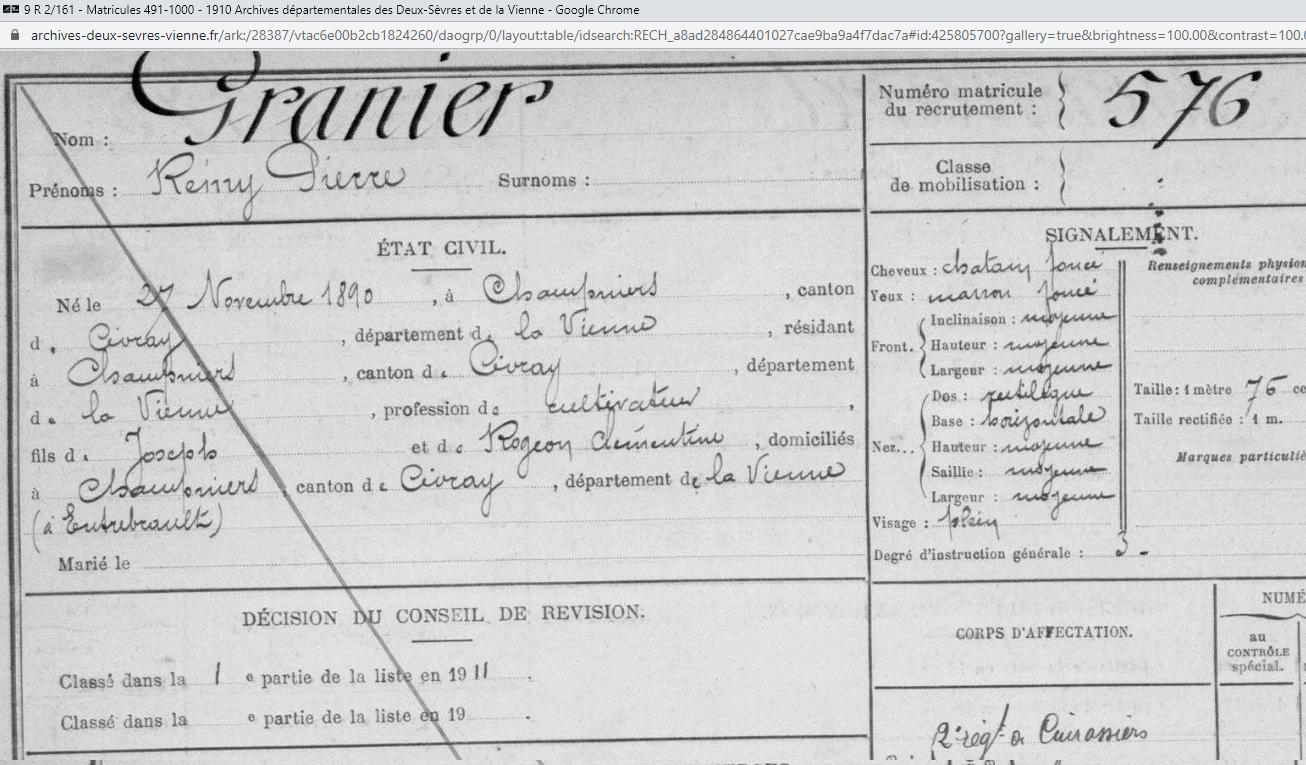 9 R 2/161 - Matricules 491-1000 - 1910 Archives départementales des Deux-Sèvres et de la Vienne - Google Chrome
archives-deux-sevres-vienne.fr/ark:/28387/vtac6e00b2cb1824260/daogrp/0/layout:table/idsearch:RECH_a8ad284864401027cae9ba9a4f7dac7a#id:425805700?gallery=true&brightness=100.00&contrast=100.0
Nom : Granier
Prénoms : Rémy Pierre Surnoms :
ÉTAT CIVIL.
Né le 27 Novembre 1890, à Champniers, canton
d. Civray, département de la Vienne, résidant
à Champniers, canton de Civray, département
de la Vienne, profession de cultivateur,
fils de Joseph et de Rogeon Clémentine, domiciliés
à Champniers, canton de Civray, département de la Vienne
(à Entrebrault)
Marié le
DÉCISION DU CONSEIL DE REVISION.
Classé dans la 1e partie de la liste en 1911.
Classé dans la e partie de la liste en 19 .
Numéro matricule
du recrutement : 576
Classe
de mobilisation :
SIGNALEMENT.
Cheveux : chatain foncé
Yeux : marron foncé
Front. Inclinaison : moyenne
Hauteur : moyenne
Largeur : moyenne
Nez... Dos : rectiligne
Base : horizontale
Hauteur : moyenne
Saillie : moyenne
Largeur : moyenne
Visage : plein
Degré d'instruction générale : 3 -
Renseignements physion
complémentaires
Taille : 1 mètre 76 ce
Taille rectifiée : 1 m.
Marques particuliè
CORPS D'AFFECTATION.
NUMÉ
au
CONTRÔLE
spécial.
2e régt de Cuirassiers